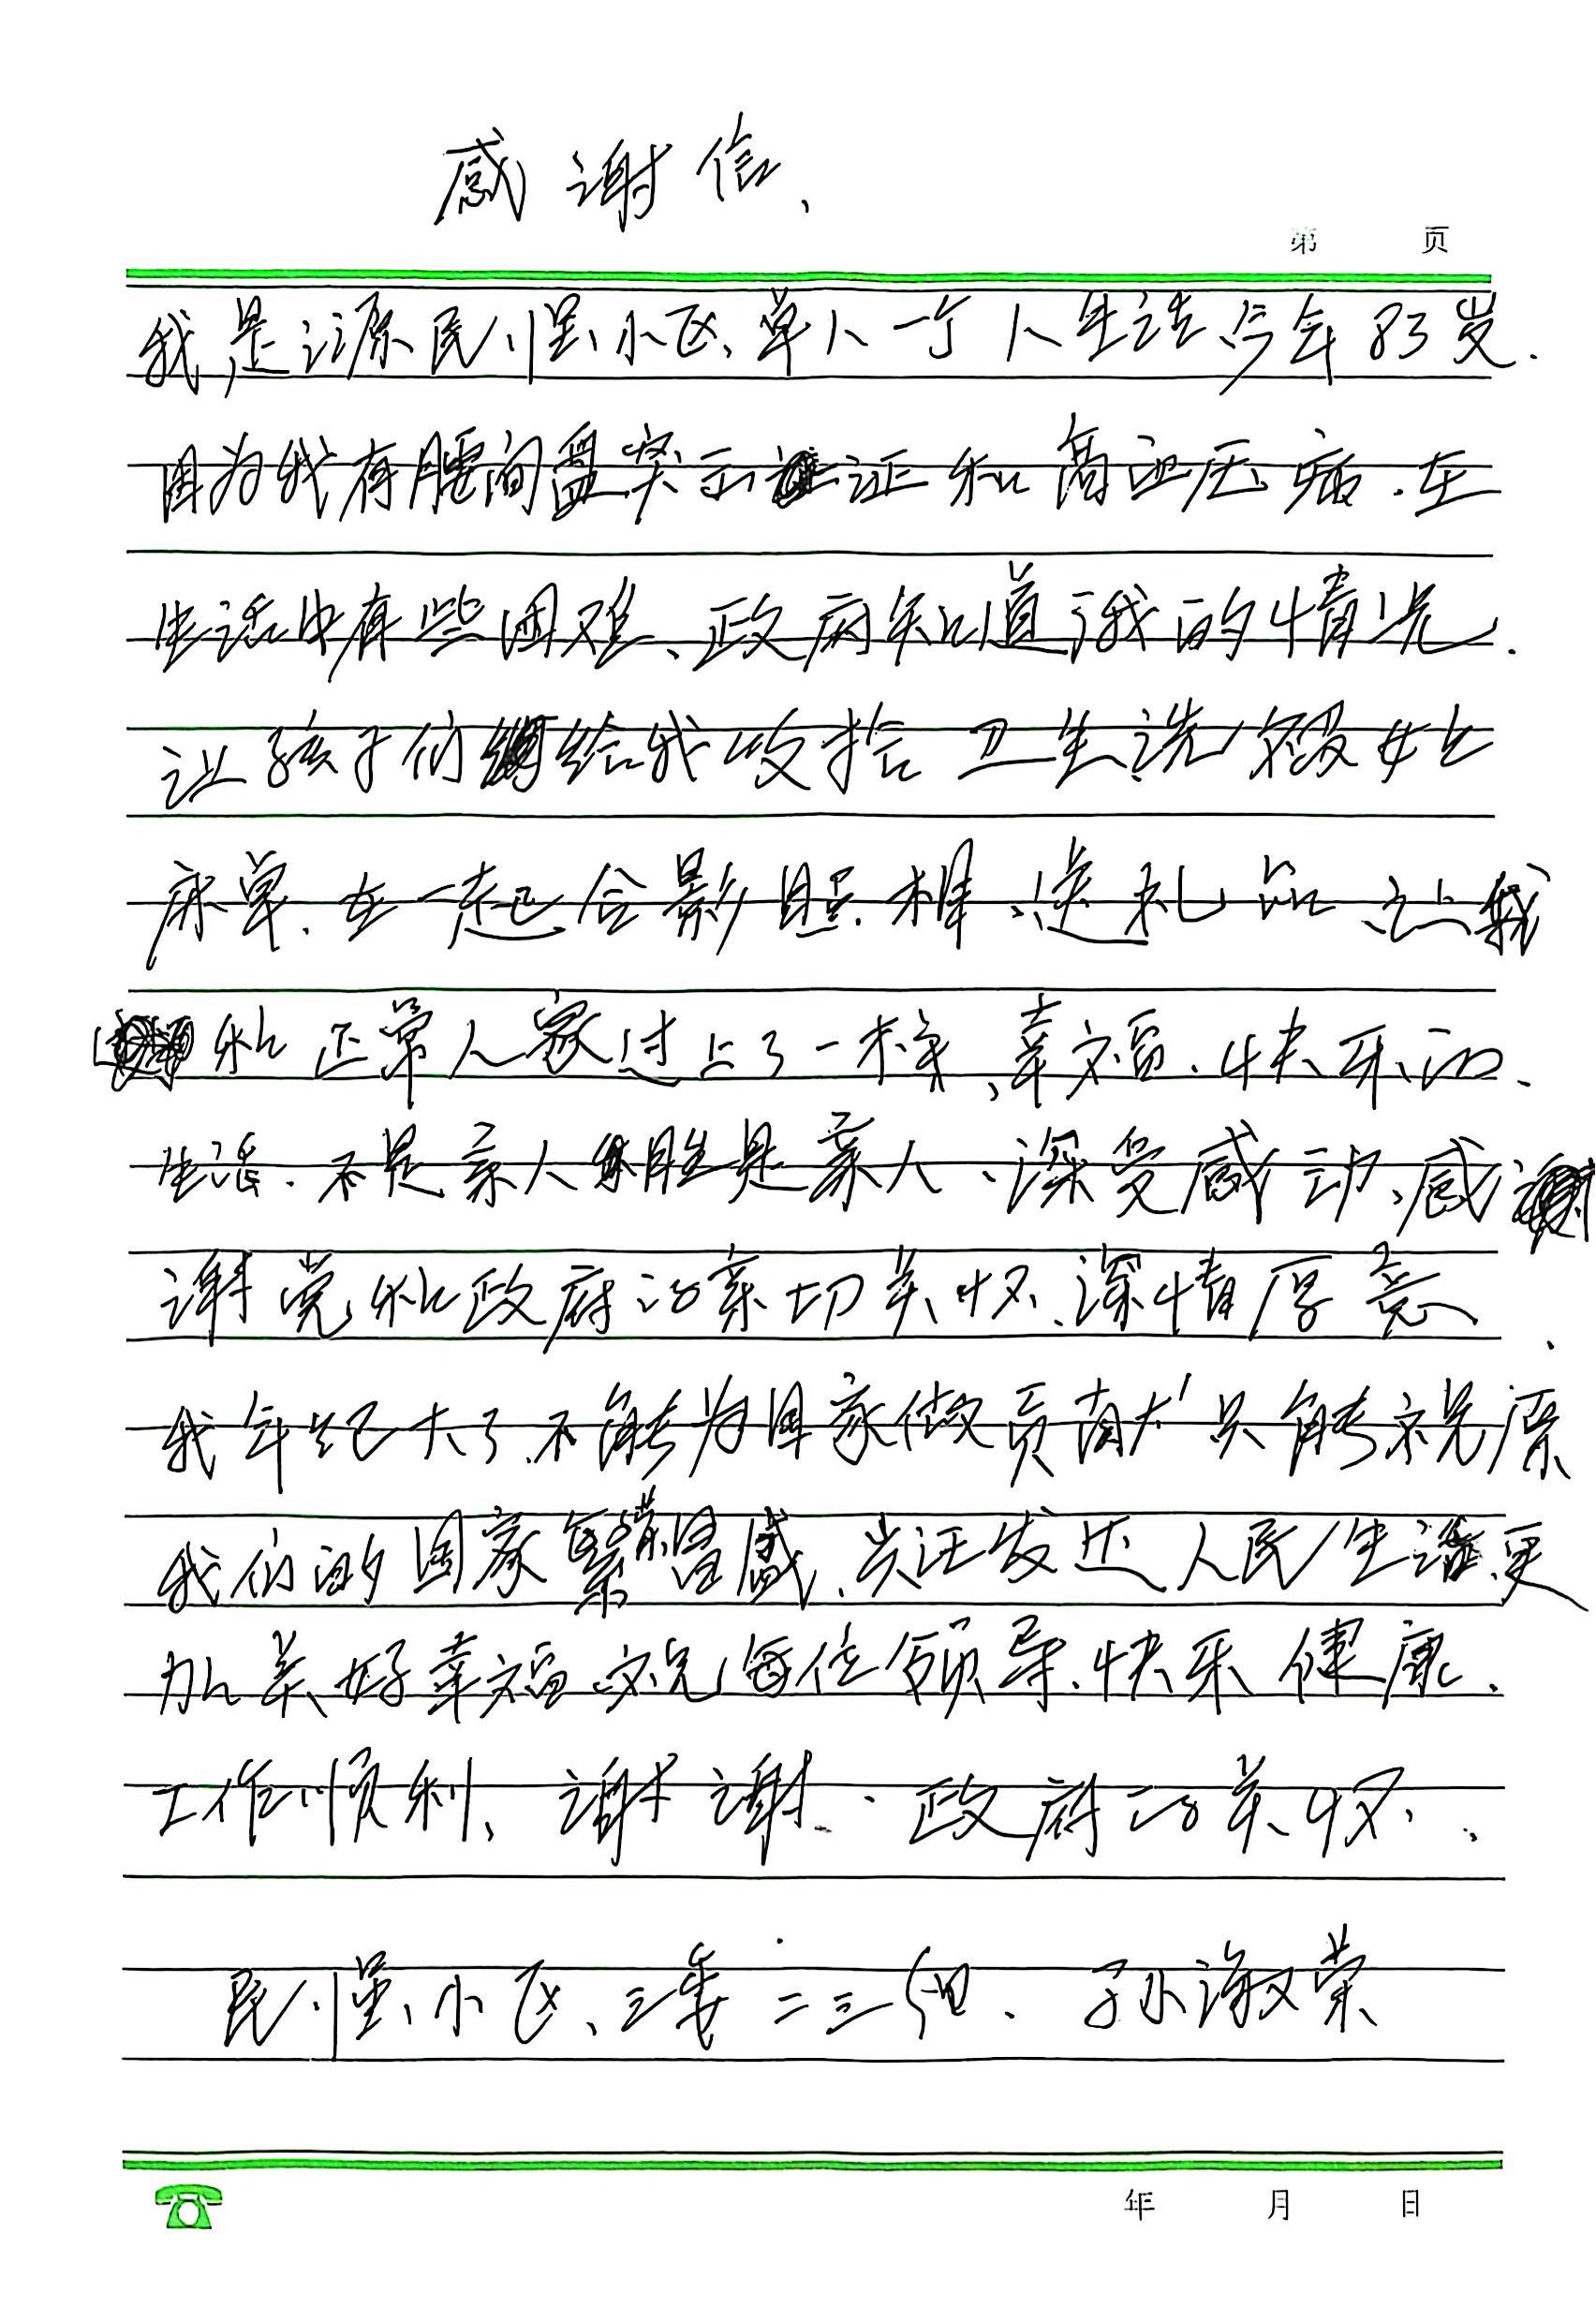 感谢信、
第 页
我是江源民惺小区、单人一个人生活、今年83岁.
因为我有腰间盘突示证和高血压病.在
生活中有些困难、政府知道了我的情况.
让孩子们给我收拾卫生洗被女上
床单.在一起合影照相、送礼品、让我
和正常人家过上了一样、幸福.快乐的、
生活.不是亲人胜是亲人、深受感动、感
谢党和政府的亲切关怀、深情厚意.
我年纪大了.不能为国家做贡献只能祝原
我们的国家繁荣昌盛、兴旺发达人民生活更
加美好幸福祝每位领导、快乐健康.
工作顺利、谢谢.政府的关怀、
民惺小区、三委二三组、孙淑荣
年 月 日